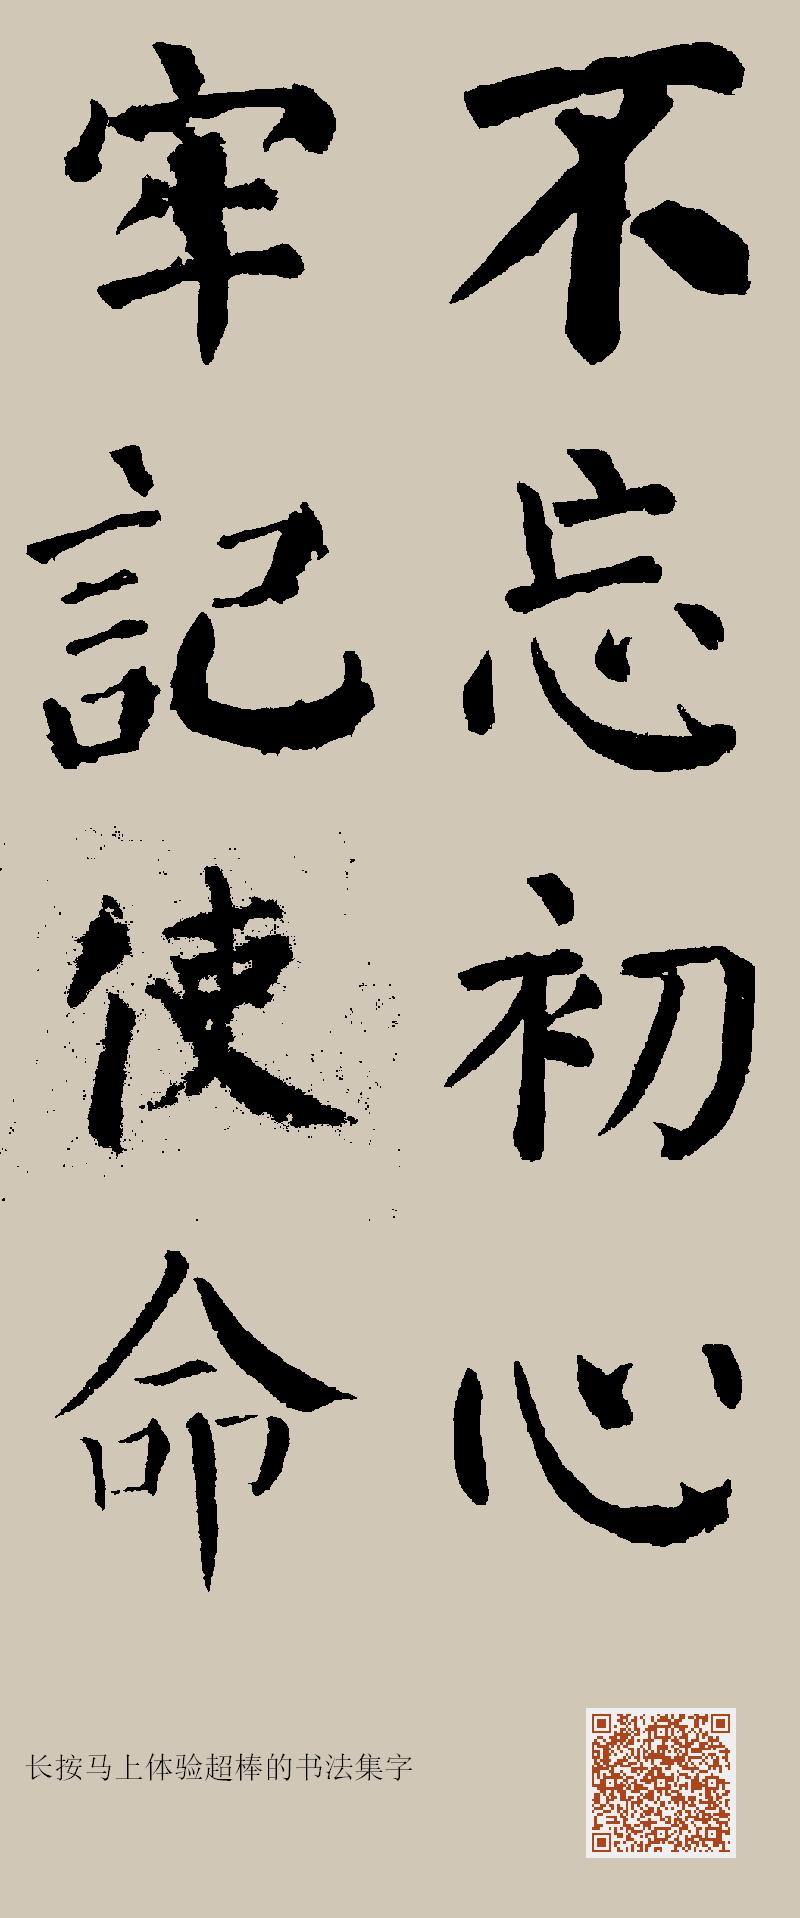 不忘初心
牢記使命
长按马上体验超棒的书法集字